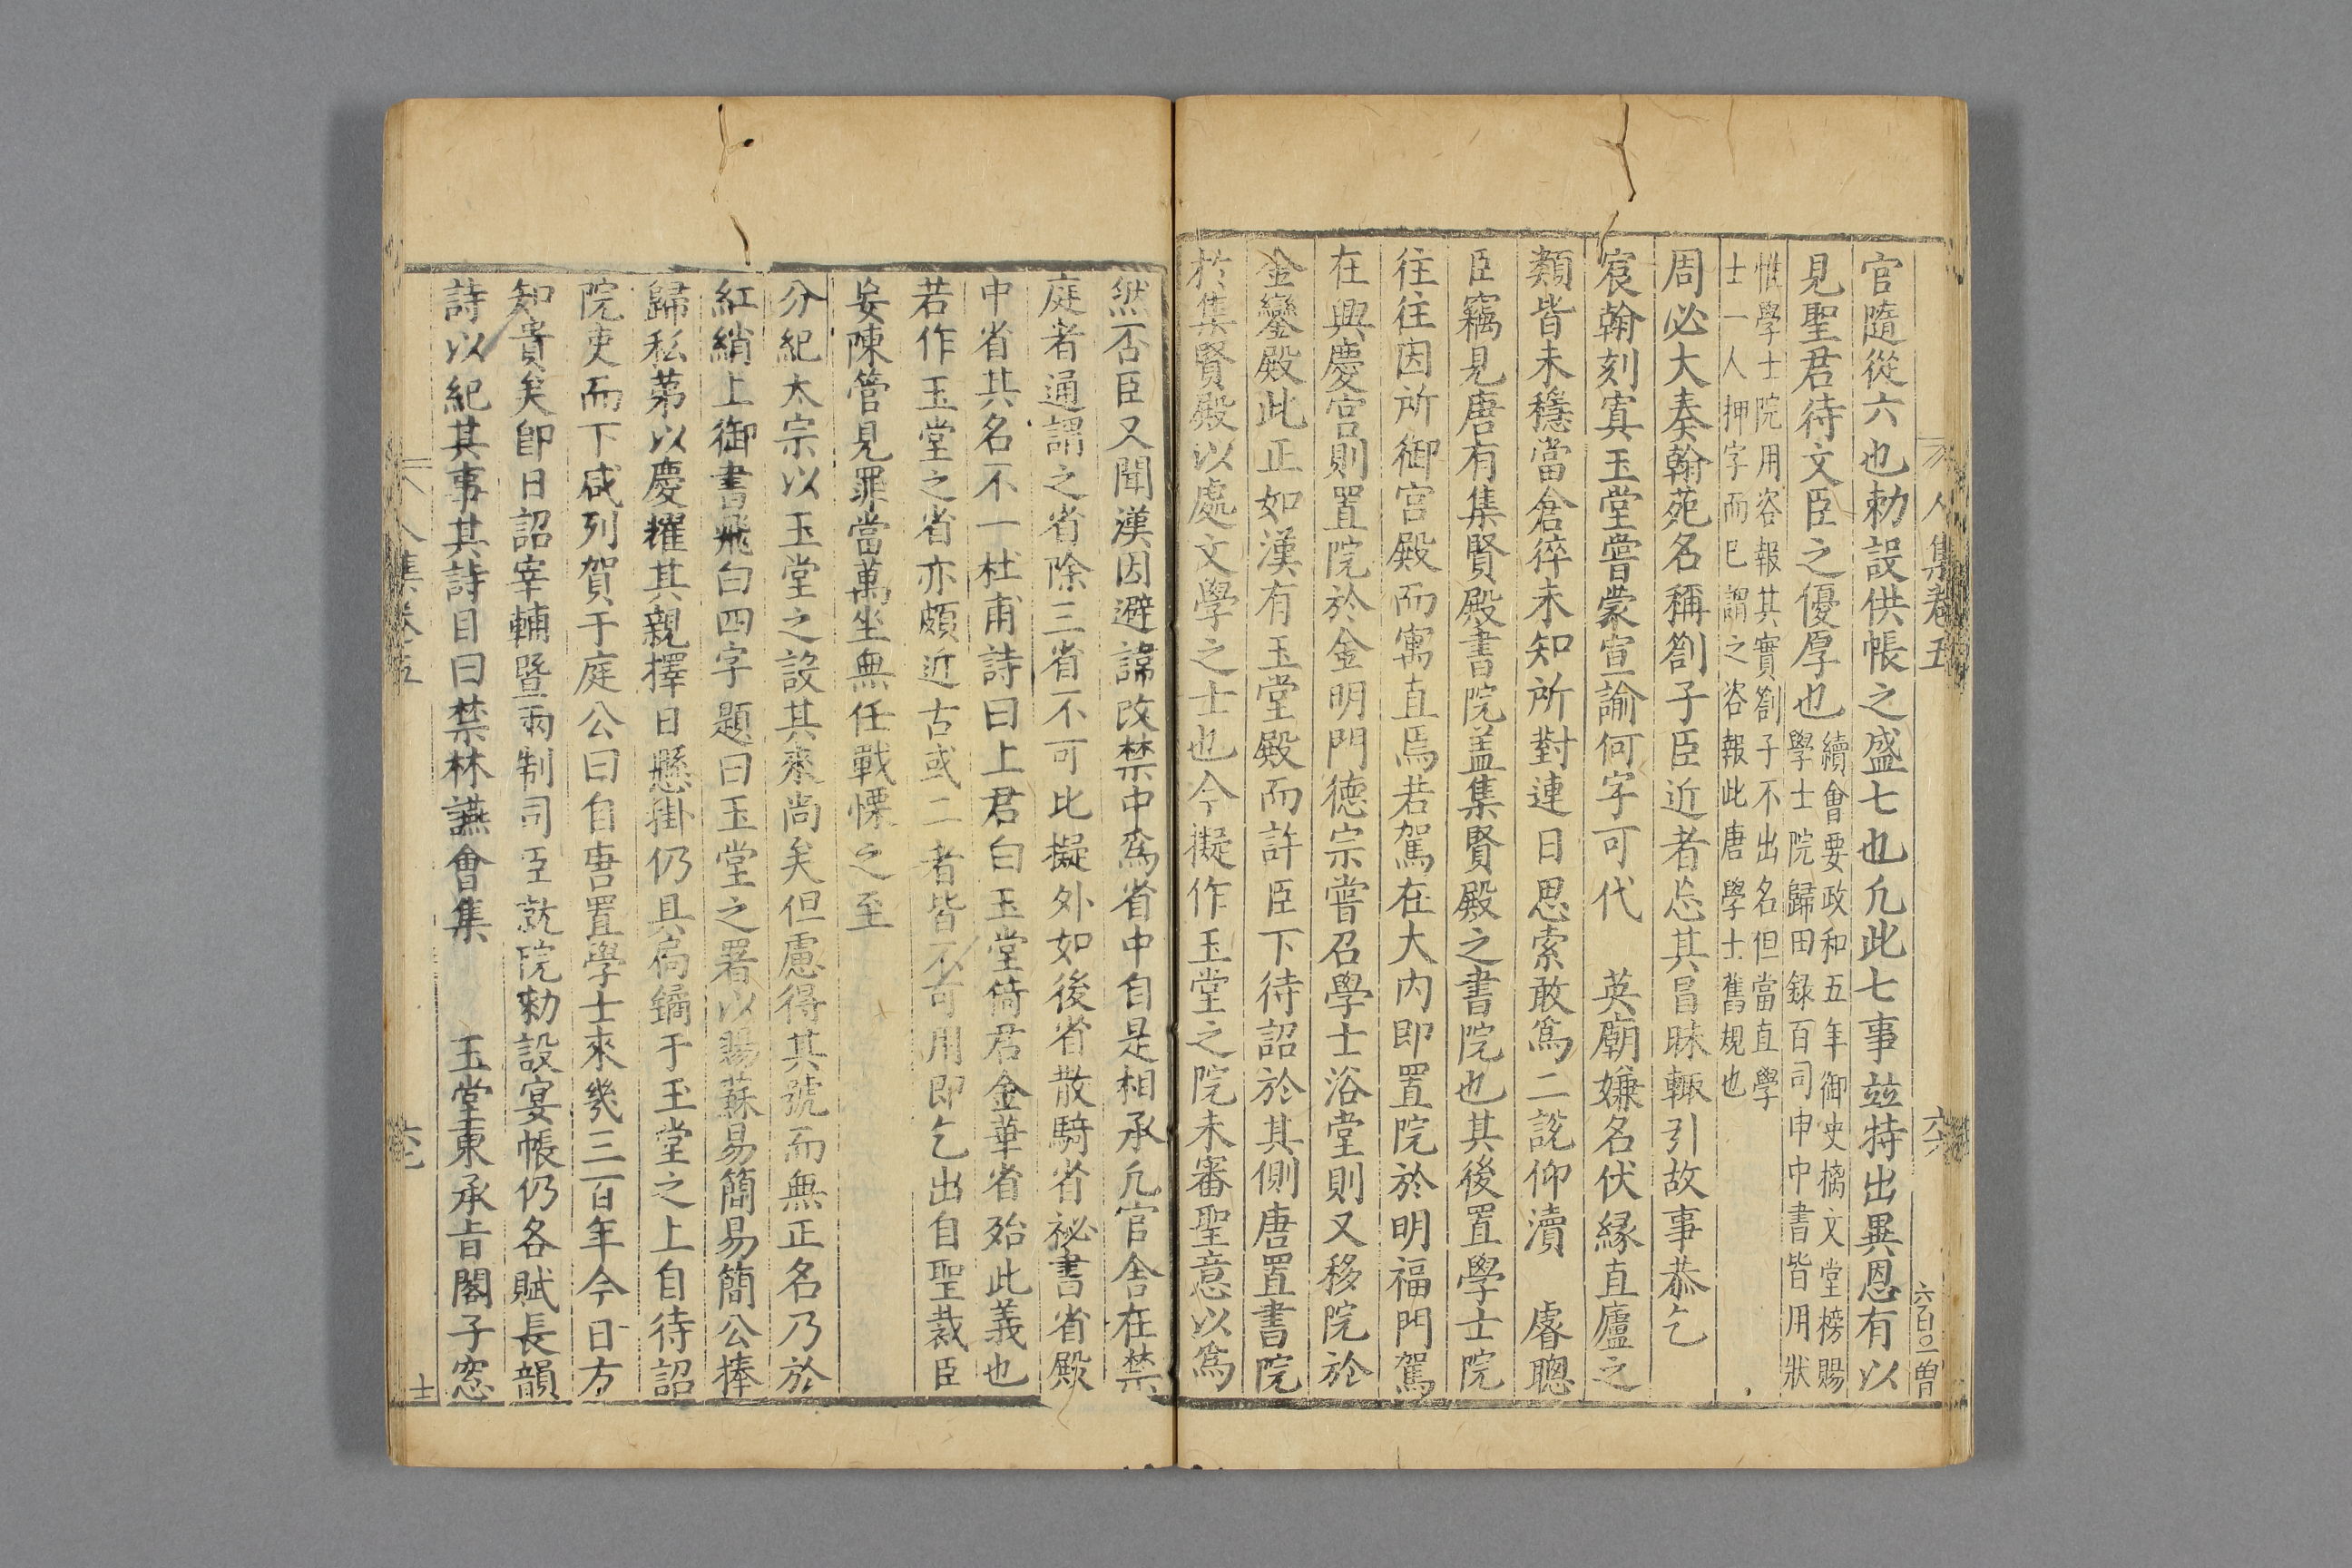 人集卷五
六
六百〇一曽
官隨從六也勅設供帳之盛七也凢此七事竝特出異恩有以
見聖君待文臣之優厚也
續會要政和五年御史摛文堂榜賜
學士院歸田錄百司申中書皆用狀
惟學士院用咨報其實劄子不出名但當直學
士一人押字而已謂之咨報此唐學士舊規也
周必大奏翰苑名稱劄子臣近者忘其冒昧輙引故事恭乞
宸翰刻寘玉堂嘗蒙宣諭何字可代 英廟嫌名伏緣直廬之
類皆未穩當倉猝未知所對連日思索敢爲二說仰瀆 睿聰
臣竊見唐有集賢殿書院盖集賢殿之書院也其後置學士院
往往因所御宮殿而寓直焉若駕在大内即置院於明福門駕
在興慶宮則置院於金明門德宗嘗召學士浴堂則又移院於
金鑾殿此正如漢有玉堂殿而許臣下待詔於其側唐置書院
於集賢殿以處文學之士也今擬作玉堂之院未審聖意以爲
然否臣又聞漢因避諱改禁中爲省中自是相承凢官舍在禁
庭者通謂之省除三省不可比擬外如後省散騎省祕書省殿
中省其名不一杜甫詩曰上君白玉堂倚君金華省殆此義也
若作玉堂之省亦頗近古或二者皆不可用即乞出自聖裁臣
妄陳管見罪當萬坐無任戰慄之至
分紀太宗以玉堂之設其來尚矣但慮得其號而無正名乃於
紅綃上御書飛白四字題曰玉堂之署以賜蘇易簡易簡公捧
歸私苐以慶耀其親擇日懸掛仍具扃鐍于玉堂之上自待詔
院吏而下咸列賀于庭公曰自唐置學士來幾三百年今日方
知貴矣卽日詔宰輔曁兩制司臣就院勅設宴帳仍各賦長韻
詩以紀其事其詩目曰禁林讌會集 玉堂東承旨閣子窓
人集卷五
士